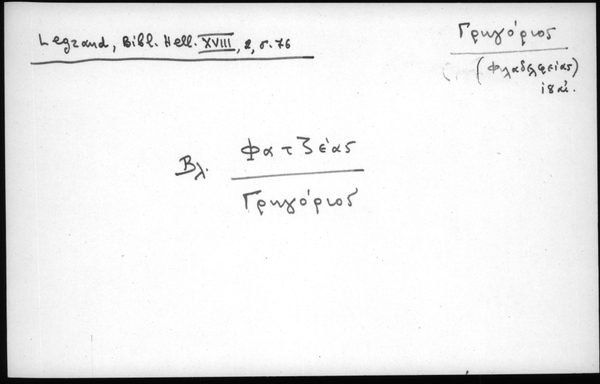 Legrand, Bibl. Hell. XVIII, 2, σ. 76
Γρηγόριος
(Φιλαδελφείας)
18 αἰ.
Βλ. Φατζέας
Γρηγόριος